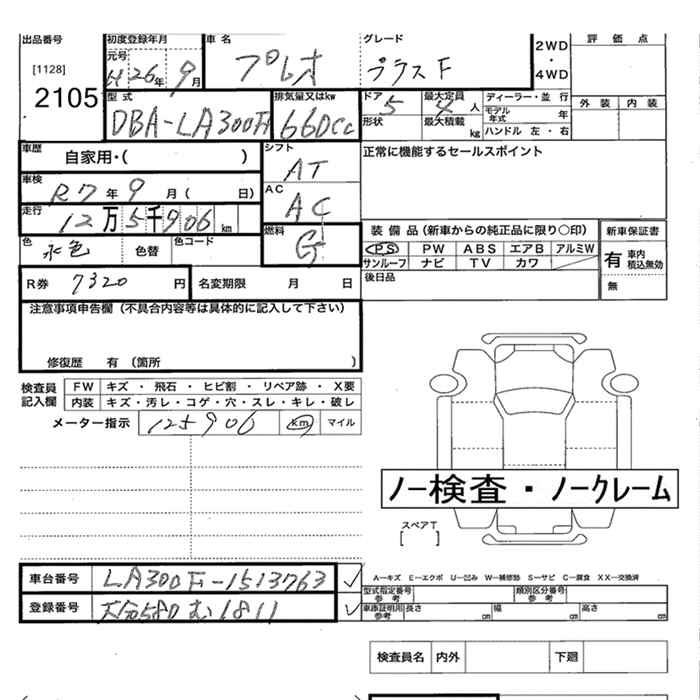 出品番号 初度登録年月 車名 グレード 2WD・4WD 評価点
[1128] 元号 H26年9月 プレオ プラスF
2105 型式 排気量又はkw ドア 5 最大定員 4人 ディーラー・並行 外装 内装
DBA-LA300F 660cc 形状 最大積載 kg モデル年式 年 ハンドル 左・右
車歴 自家用・( ) シフト AT 正常に機能するセールスポイント
車検 R7年9月( 日) AC AC
走行 12万5千906km 燃料 G 装備品(新車からの純正品に限り○印) 新車保証書
色 水色 色替 色コード PS PW ABS エアB アルミW 有 車内積込無効
サンルーフ ナビ TV カワ
R券 7320円 名変期限 月 日 後日品 無
注意事項申告欄(不具合内容等は具体的に記入して下さい)
修復歴 有(箇所 )
検査員記入欄 FW キズ・飛石・ヒビ割・リペア跡・X要
内装 キズ・汚レ・コゲ・穴・スレ・キレ・破レ
メーター指示 125906 km マイル
ノー検査・ノークレーム
スペアT
[ ]
車台番号 LA300F-1513763 A-キズ E-エクボ U-凹み W-補修跡 S-サビ C-腐食 XX-交換済
型式指定番号 参考 類別区分番号 参考
登録番号 大分580む1811 車庫証明用参考 長さ cm 幅 cm 高さ cm
検査員名 内外 下廻